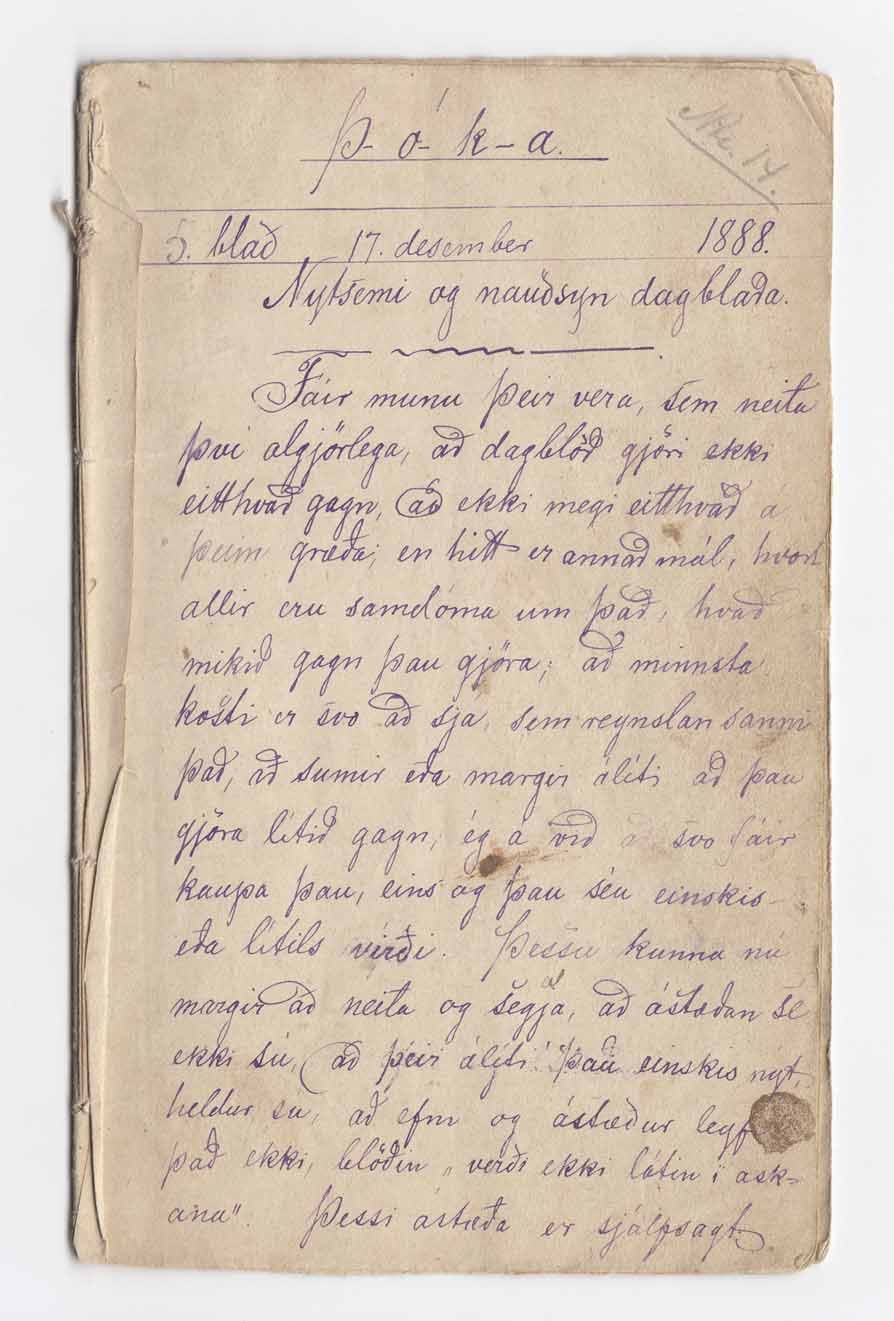 Þ-ó-k-a.
No. 14.
5. blað 17. desember 1888.
Nytsemi og nauðsyn dagblaða.
Fáir munu þeir vera, sem neita
því algjörlega, að dagblöð gjöri ekki
eitthvað gagn, að ekki megi eitthvað á
þeim græða; en hitt er annað mál, hvort
allir eru samdóma um það, hvað
mikið gagn þau gjöra; að minnsta
kosti er svo að sja, sem reynslan sanni
það, að sumir eða margir álíti að þau
gjöra lítið gagn, ég a við svo fáir
kaupa þau, eins og þau séu einskis-
eða lítils virði. Þessu kunna nú
margir að neita og segja, að ástæðan sé
ekki sú, að þeir álíti þau einskis nýt,
heldur sú, að efni og ástæður
það ekki, blöðin „verði ekki látin í ask-
ana". Þessi ástæða er sjálfsagt